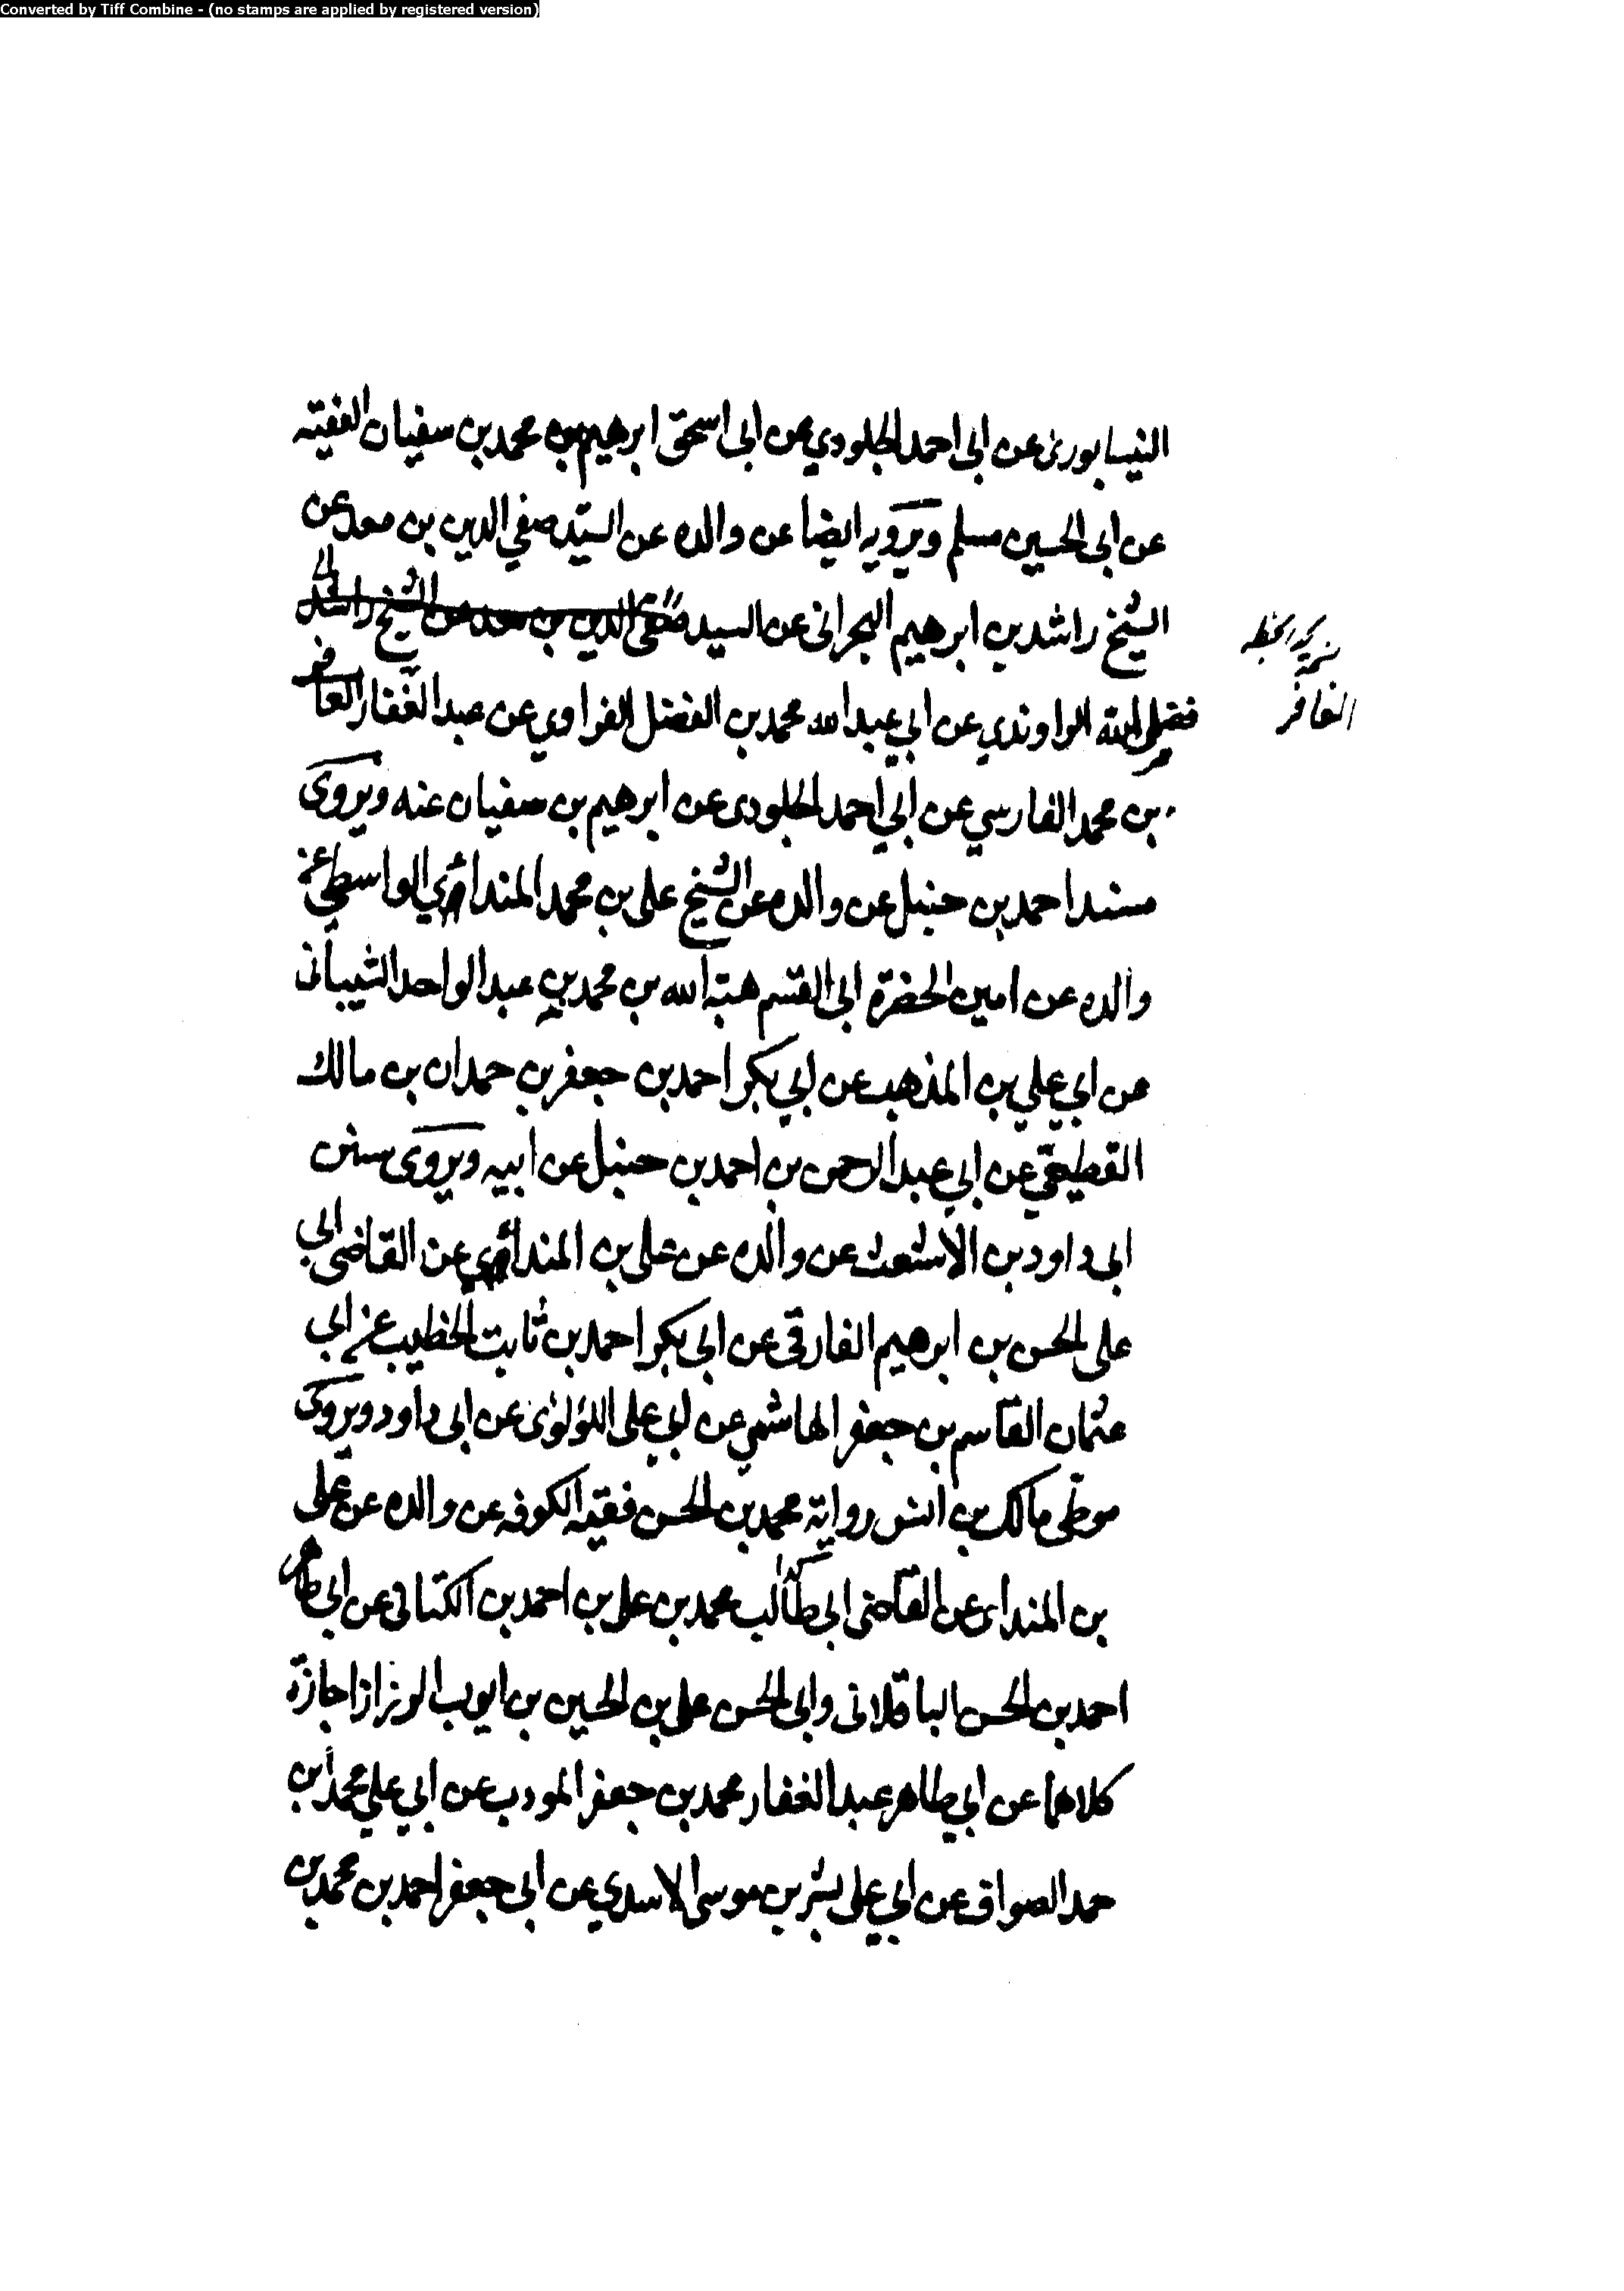 Converted by Tiff Combine - (no stamps are applied by registered version)
النيسابوري عن ابى احمد الجلودي عن ابى اسحق ابرهيم بن محمد بن سفيان الفقيه
عن ابى الحسين مسلم ويرويه ايضا عن والده عن السيد صفي الدين بن معد عن
الشيخ راشد بن ابرهيم البحرانى عن السيد صفى الدين بن معد عن الشيخ راشد
فضل الله الراوندي عن ابي عبد الله محمد بن الفضل الفراوي عن عبد الغفار الغافر
الغافر
بن محمد الفارسي عن ابي احمد الجلودى عن ابرهيم بن سفيان عنه ويروى
مسند احمد بن حنبل عن والده عن الشيخ على بن محمد المندائي الواسطي عن
والده عن امين الحضرة ابى القسم هبة الله بن محمد بن عبد الواحد الشيبانى
عن ابي علي بن المذهب عن ابي بكر احمد بن جعفر بن حمدان بن مالك
القطيعي عن ابي عبد الرحمن بن احمد بن حنبل عن ابيه ويروى سنن
ابى داود بن الاشعث عن والده عن على بن المندائي عن القاضى ابي
على الحسن بن ابرهيم الفارقى عن ابى بكر احمد بن ثابت الخطيب عن ابي
عثمان القاسم بن جعفر الهاشمي عن ابي على اللؤلؤى عن ابى داود ويروى
موطى مالك بن انس رواية محمد بن الحسن فقيه الكوفه عن والده عن على
بن المنداى عن القاضى ابى طالب محمد بن على بن احمد بن الكتانى عن ابى طاهر
احمد بن الحسن الباقلانى وابى الحسن على بن الحسين بن ايوب البزاز اجازة
كلاهما عن ابي طاهر عبد الغفار محمد بن جعفر المودب عن ابي علي محمد ابن
حمد الصواف عن ابي على بشر بن موسى الاسدي عن ابى جعفر احمد بن محمد بن